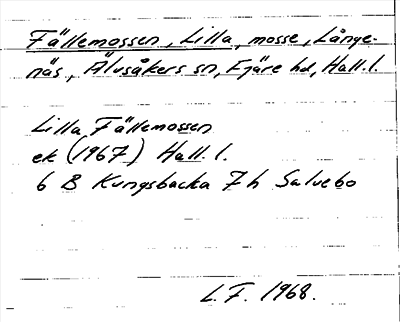 Fällemossen, Lilla, mosse, Långe-
näs, Älvsåkers sn, Fjäre hd, Hall. l.
Lilla Fällemossen
ek (1967) Hall. l.
6 B Kungsbacka 7 h Saluebo
L.F. 1968.